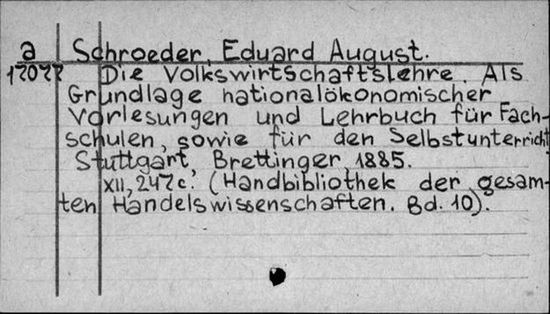 a Schroeder, Eduard August.
12022 Die Volkswirtschaftslehre. Als
Grundlage nationalökonomischer
Vorlesungen und Lehrbuch für Fach-
schulen, sowie für den Selbstunterricht
Stuttgart, Brettinger, 1885.
XII, 247 c. (Handbibliothek der gesam-
ten Handelswissenschaften. Bd. 10).